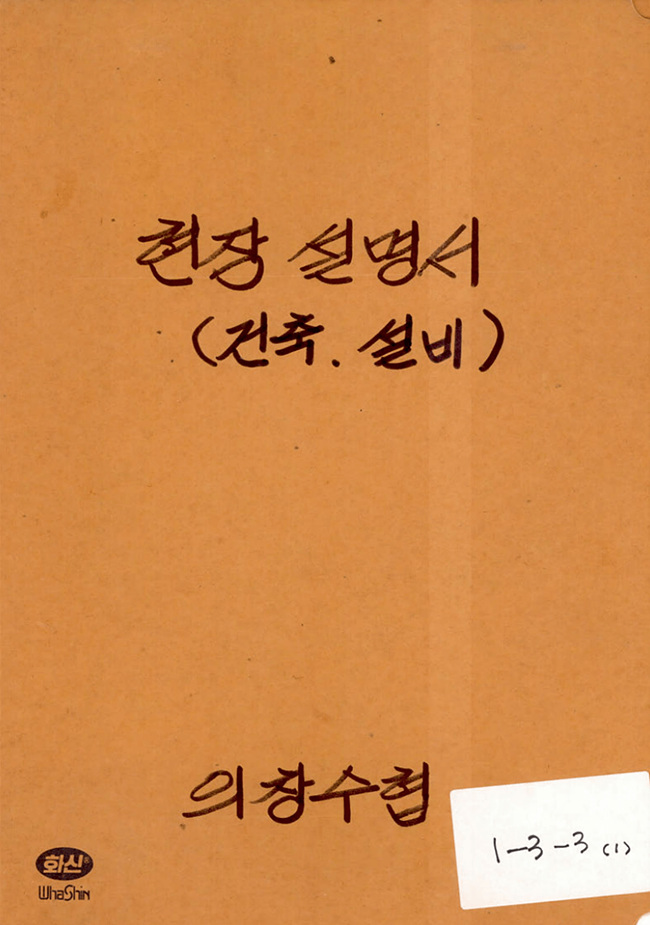 현장 설명서
(건축. 설비)
의창수협
1-3-3 (1)
화신®
WhaShin